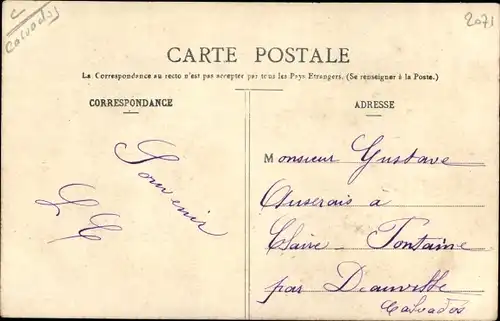 C
Calvados
2071
CARTE POSTALE
La Correspondance au recto n'est pas acceptée par tous les Pays Etrangers. (Se renseigner à la Poste.)
CORRESPONDANCE
Souvenir
ADRESSE
Monsieur Gustave
Auserais à
Claire-Fontaine
par Deauville
Calvados